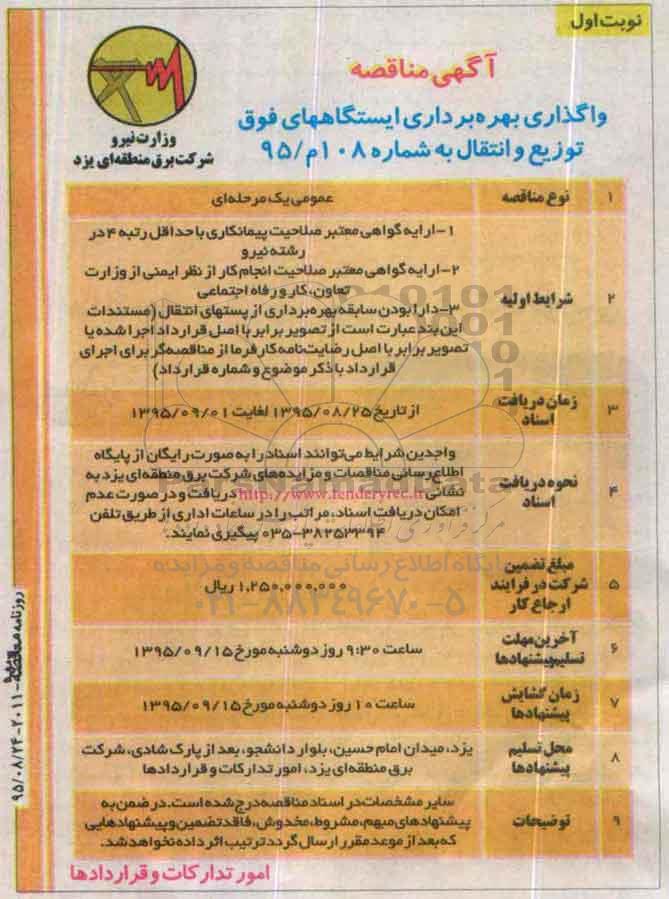 نوبت اول
آگهی مناقصه
واگذاری بهره‌برداری ایستگاههای فوق
توزیع و انتقال به شماره ۱۰۸م/۹۵
وزارت نیرو
شرکت برق منطقه‌ای یزد
۱ نوع مناقصه عمومی یک مرحله‌ای
۲ شرایط اولیه
۱-ارایه گواهی معتبر صلاحیت پیمانکاری با حداقل رتبه ۴ در
رشته نیرو
۲-ارایه گواهی معتبر صلاحیت انجام کار از نظر ایمنی از وزارت
تعاون، کار و رفاه اجتماعی
۳-دارا بودن سابقه بهره‌برداری از پستهای انتقال (مستندات
این بند عبارت است از تصویر برابر با اصل قرارداد اجرا شده یا
تصویر برابر با اصل رضایت‌نامه کارفرما از مناقصه‌گر برای اجرای
قرارداد با ذکر موضوع و شماره قرارداد)
۳ زمان دریافت
اسناد
از تاریخ ۱۳۹۵/۰۸/۲۵ لغایت ۱۳۹۵/۰۹/۰۱
۴ نحوه دریافت
اسناد
واجدین شرایط می‌توانند اسناد را به صورت رایگان از پایگاه
اطلاع‌رسانی مناقصات و مزایده‌های شرکت برق منطقه‌ای یزد به
نشانی http://www.tenderyrec.ir دریافت و در صورت عدم
امکان دریافت اسناد، مراتب را در ساعات اداری از طریق تلفن
۰۳۵-۳۸۲۵۲۳۹۴ پیگیری نمایند.
۵ مبلغ تضمین
شرکت در فرایند
ارجاع کار
۱,۲۵۰,۰۰۰,۰۰۰ ریال
۶ آخرین مهلت
تسلیم پیشنهادها
ساعت ۹:۳۰ روز دوشنبه مورخ ۱۳۹۵/۰۹/۱۵
۷ زمان گشایش
پیشنهادها
ساعت ۱۰ روز دوشنبه مورخ ۱۳۹۵/۰۹/۱۵
۸ محل تسلیم
پیشنهادها
یزد، میدان امام حسین، بلوار دانشجو، بعد از پارک شادی، شرکت
برق منطقه‌ای یزد، امور تدارکات و قراردادها
۹ توضیحات
سایر مشخصات در اسناد مناقصه درج شده است. در ضمن به
پیشنهادهای مبهم، مشروط، مخدوش، فاقد تضمین و پیشنهادهایی
که بعد از موعد مقرر ارسال گردد ترتیب اثر داده نخواهد شد.
امور تدارکات و قراردادها
پایگاه اطلاع رسانی مناقصه و مزایده
۰۲۱-۸۸۳۴۹۶۷۰-۵
روزنامه مناقصه-۲۰۱۱-۹۵/۰۸/۲۴